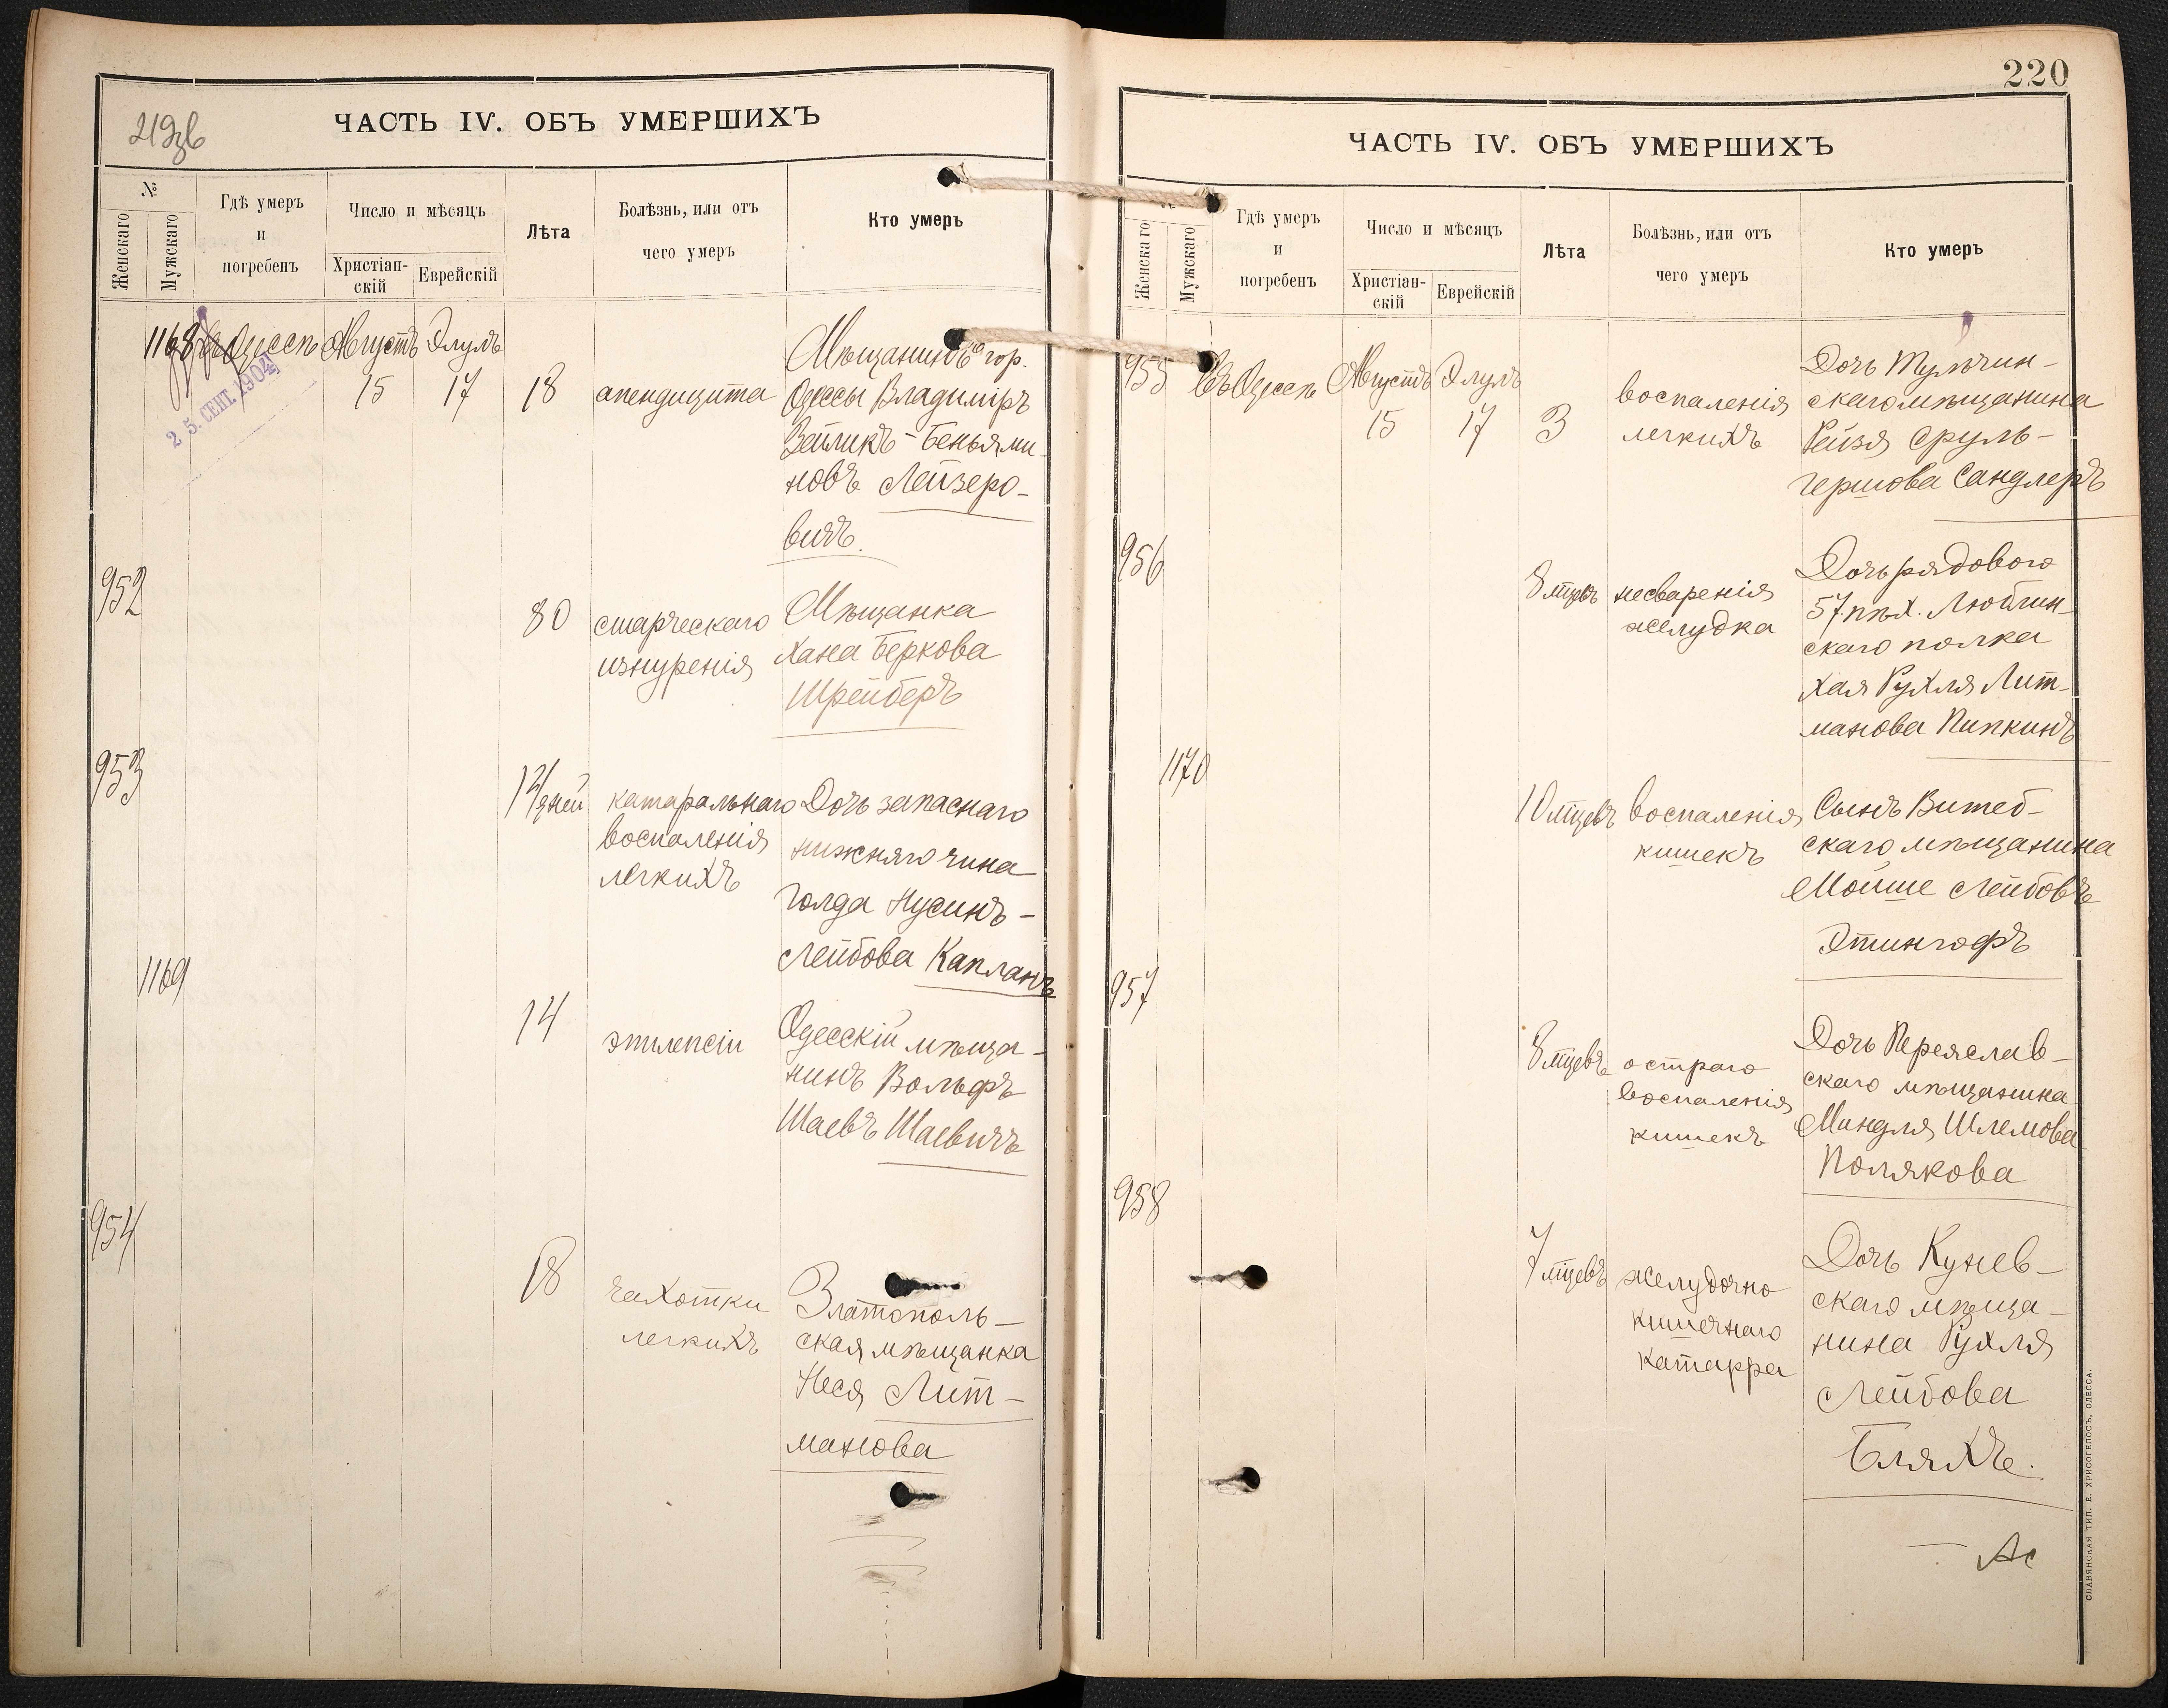 219 об
ЧАСТЬ IV. ОБЪ УМЕРШИХЪ
№
Женскаго
Мужскаго
Гдѣ умеръ
и
погребенъ
Число и мѣсяцъ
Христіан-
скій
Еврейскій
Лѣта
Болѣзнь, или отъ
чего умеръ
Кто умеръ
1168 Въ Одессѣ Августъ Элулъ
15 17 18 апендицита
25. СЕНТ. 1904
Мѣщанинъ гор.
Одессы Владиміръ
Зейликъ-Беньями-
новъ Лейзеро-
вичъ.
952
80 старческаго
изнуренія
Мѣщанка
Хана Беркова
Шрейберъ
953
14 дней катаральнаго
воспаленія
легкихъ
Дочь запаснаго
нижняго чина
Голда Нусинъ-
Лейбова Капланъ
1169
14 эпилепсіи
Одесскій мѣща-
нинъ Вольфъ
Шаевъ Шаевичъ
954
18 чахотки
легкихъ
Златополь-
ская мѣщанка
Неся Лит-
манова
220
ЧАСТЬ IV. ОБЪ УМЕРШИХЪ
Женскаго
Мужскаго
Гдѣ умеръ
и
погребенъ
Число и мѣсяцъ
Христіан-
скій
Еврейскій
Лѣта
Болѣзнь, или отъ
чего умеръ
Кто умеръ
955 Въ Одессѣ Августъ Элулъ
15 17 3
воспаленія
легкихъ
Дочь Тульчин-
скаго мѣщанина
Рейзя Сруль-
Гершова Сандлеръ
956
8 мцевъ несваренія
желудка
Дочь рядового
57 пѣх. Люблин-
скаго полка
Хая Рухля Лит-
манова Пипкинъ
1170
10 мцевъ воспаленія
кишекъ
Сынъ Витеб-
скаго мѣщанина
Мойше Лейбовъ
Этингофъ
957
8 мцевъ остраго
воспаленія
кишекъ
Дочь Переяслав-
скаго мѣщанина
Миндля Шлемова
Полякова
958
7 мцевъ желудочно
кишечнаго
катарра
Дочь Кунев-
скаго мѣща-
нина Рухля
Лейбова
Бляхъ.
СЛАВЯНСКАЯ ТИП. Е. ХРИСОГЕЛОСЪ, ОДЕССА.